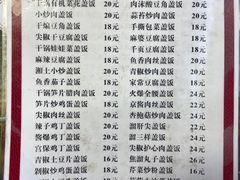 干锅有机菜花盖饭 20元
小炒肉盖饭 20元
干煸豆角盖饭 18元
尖椒干豆腐盖饭 16元
干锅娃娃菜盖饭 18元
麻辣豆腐盖饭 16元
湘上小炒盖饭 20元
鱼香茄子盖饭 18元
干锅笋片腊肉盖饭 20元
笋片炒鸡蛋盖饭 18元
尖椒肉丝盖饭 20元
辣子鸡丁盖饭 20元
酱爆鸡丁盖饭 20元
宫保鸡丁盖饭 20元
青椒土豆片盖饭 16元
剁椒炒鸡蛋盖饭 18元
肉沫酸豆角盖饭 20元
蒜苔炒肉盖饭 20元
手撕包菜盖饭 16元
麻婆豆腐盖饭 16元
千页豆腐盖饭 18元
鱼香肉丝盖饭 20元
青椒炒肉盖饭 20元
回锅肉盖饭 22元
火爆全腰盖饭 24元
京酱肉丝盖饭 22元
杏鲍菇炒肉盖饭 20元
溜肝尖盖饭 22元
溜三样盖饭 24元
尖椒护心肉盖饭 24元
焦溜丸子盖饭 22元
芹菜炒粉盖饭 16元